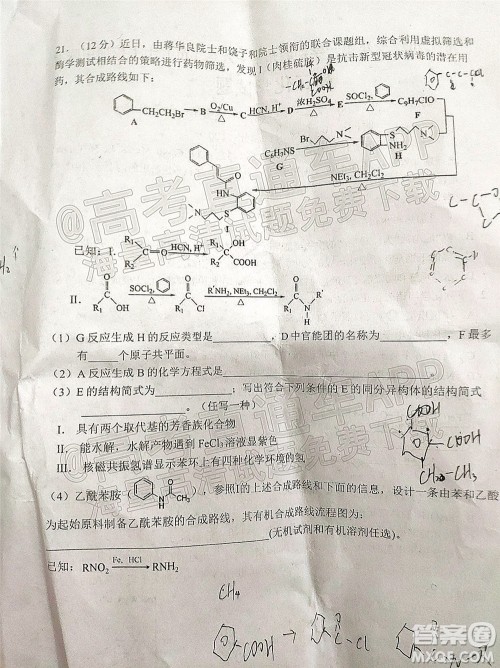 21. (12分) 近日,由蒋华良院士和饶子和院士领衔的联合课题组,综合利用虚拟筛选和
酶学测试相结合的策略进行药物筛选,发现I(肉桂硫胺)是抗击新型冠状病毒的潜在用
药,其合成路线如下:
CH₂CH₂Br
A
B
O₂/Cu
△
C
HCN, H⁺
D
浓H₂SO₄
△
E
SOCl₂
△
C₉H₇ClO
F
C₆H₇NS
G
Br
N
S
N
NH₂
H
NEt₃, CH₂Cl₂
O
HN
N
S
I
已知:I.
R₁
R₂
O
HCN, H⁺
R₁
OH
R₂
COOH
II.
O
R₁
OH
SOCl₂,
△
O
R₁
Cl
R'NH₂, NEt₃, CH₂Cl₂
O
R₁
N
H
R'
(1) G反应生成H的反应类型是,D中官能团的名称为,F最多
有个原子共平面。
(2) A反应生成B的化学方程式是。
(3) E的结构简式为;写出符合下列条件的E的同分异构体的结构简式
。(任写一种)
I. 具有两个取代基的芳香族化合物
II. 能水解,水解产物遇到FeCl₃溶液显紫色
III. 核磁共振氢谱显示苯环上有四种化学环境的氢
COOH
COOH
(4) 乙酰苯胺( ),参照I的上述合成路线和下面的信息,设计一条由苯和乙酸
为起始原料制备乙酰苯胺的合成路线,其有机合成路线流程图为:
(无机试剂和有机溶剂任选)。
已知:RNO₂ Fe, HCl RNH₂
CH₄
COOH
C-Cl
@高考直通车APP
海量高清试题免费下载
答案圈
MXQE.COM